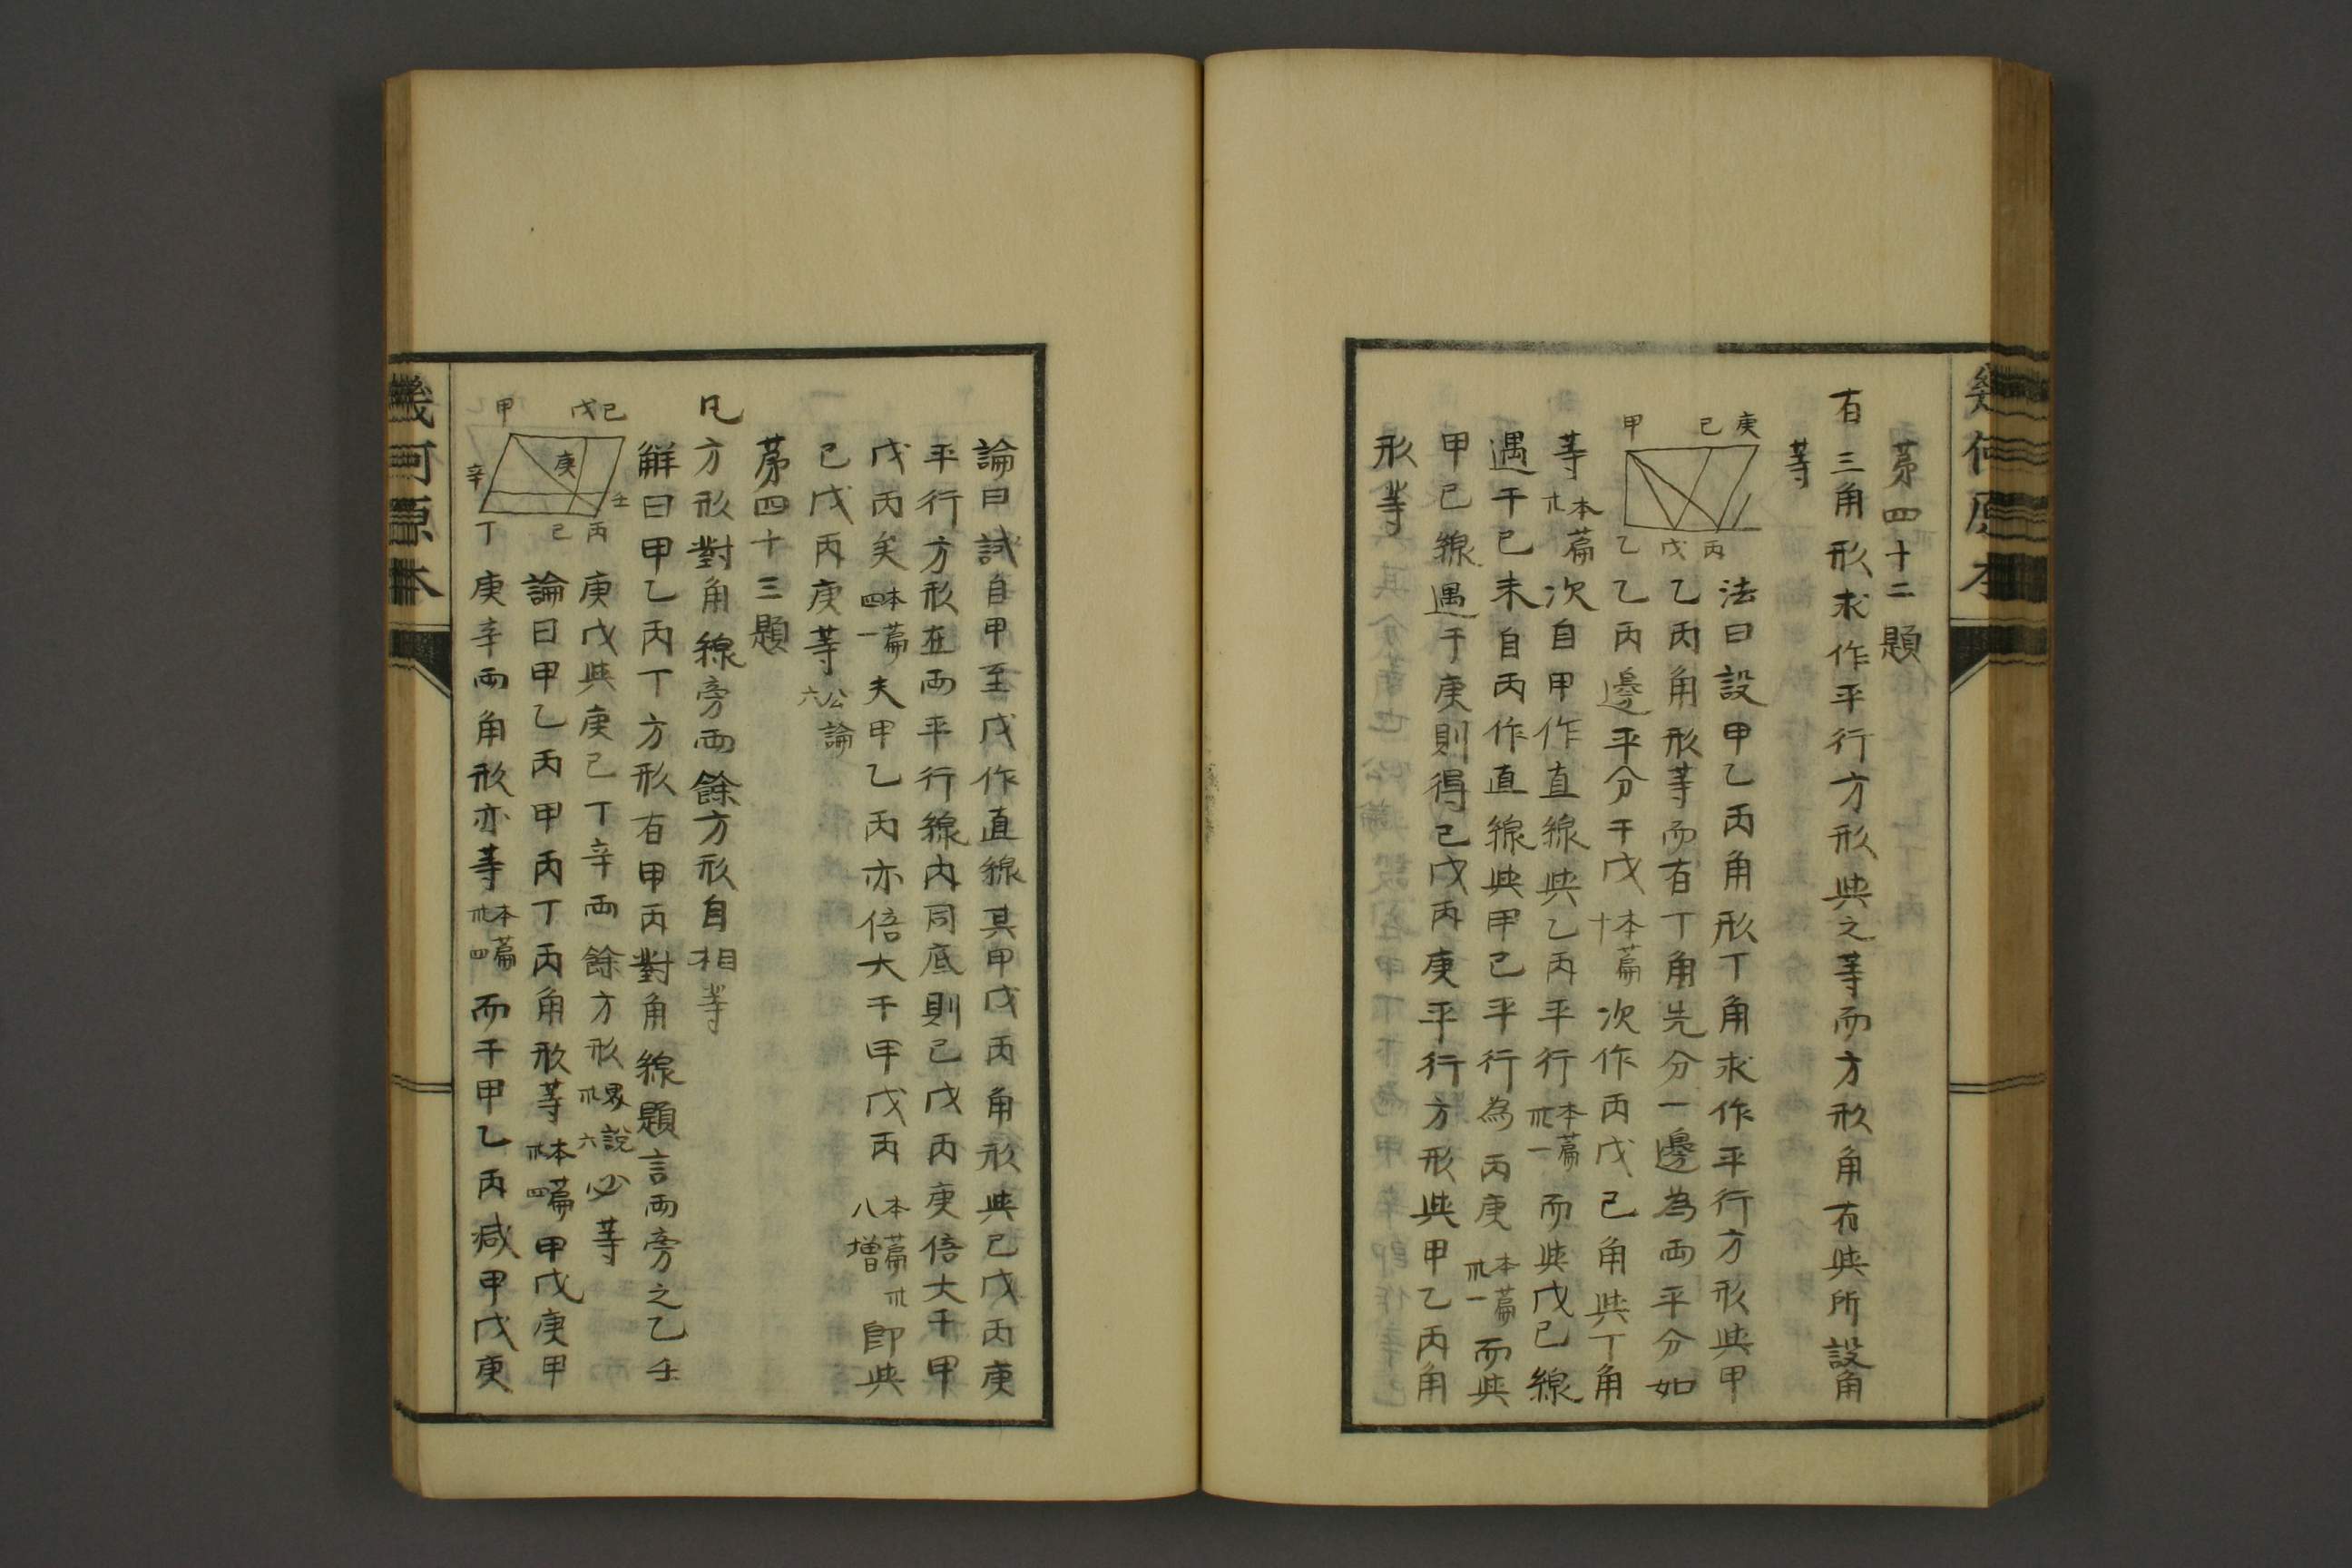 幾何原本
第四十二題
有三角形求作平行方形與之等而方形角有與所設角
等
甲 己 庚
乙 戊 丙
法曰設甲乙丙角形丁角求作平行方形與甲
乙丙角形等而有丁角先分一邊為兩平分如
乙丙邊平分于戊本篇十次作丙戊己角與丁角
等本篇卅次自甲作直線與乙丙平行本篇卅一而與戊己線
遇于己末自丙作直線與甲己平行為丙庚本篇卅一而與
甲己線遇于庚則得己戊丙庚平行方形與甲乙丙角
形等
論曰試自甲至戊作直線其甲戊丙角形與己戊丙庚
平行方形在兩平行線內同底則己戊丙庚倍大于甲
戊丙矣本篇四一夫甲乙丙亦倍大于甲戊丙本篇卅八增卽與
己戊丙庚等公論六
第四十三題
凡方形對角線旁兩餘方形自相等
解曰甲乙丙丁方形有甲丙對角線題言兩旁之乙壬
甲 戊 己
辛 庚 壬
丁 己 丙
庚戊與庚己丁辛兩餘方形界說卅六必等
論曰甲乙丙甲丙丁丙角形等本篇卅四甲戊庚甲
庚辛兩角形亦等本篇卅四而于甲乙丙減甲戊庚
幾何原本